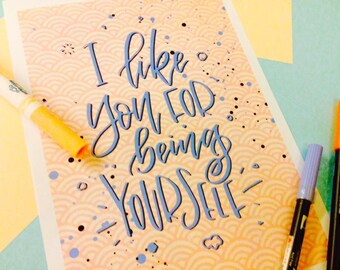 I like
you FOR
being
YOURSELF